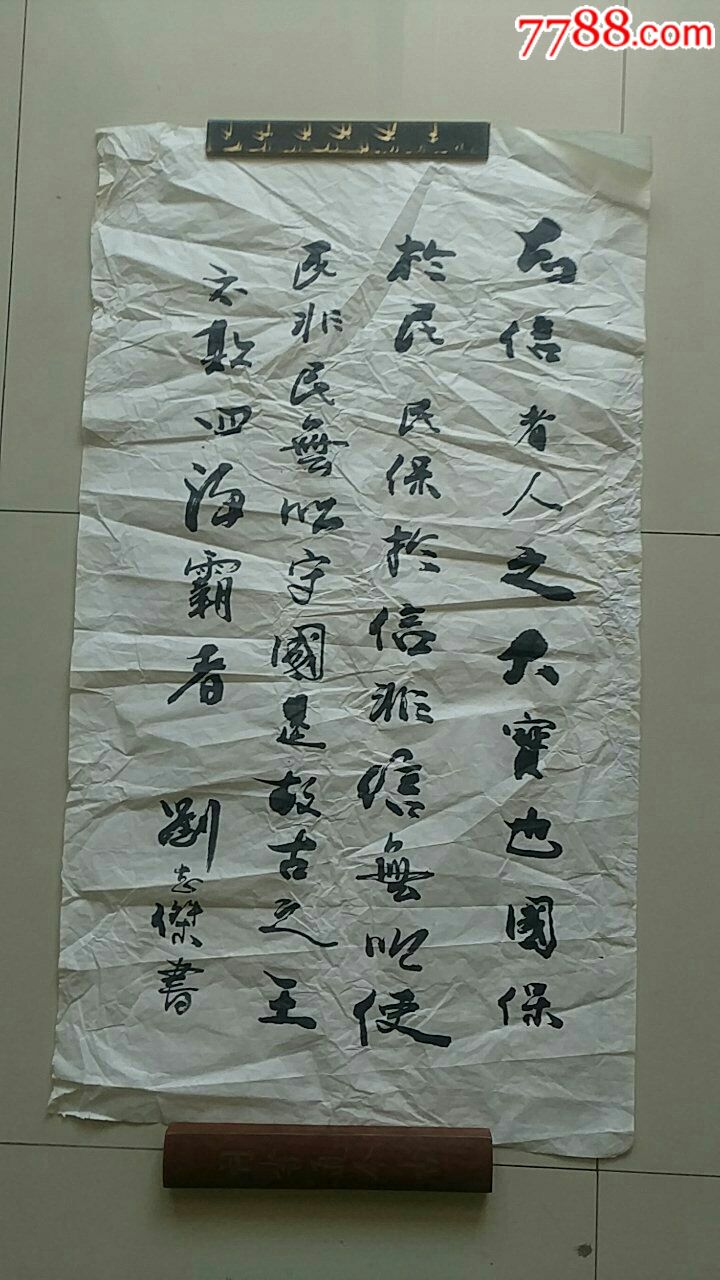 7788.com
信者人之大寶也國保
於民民保於信非信無以使
民非民無以守國是故古之王
不欺四海霸者
劉志傑書